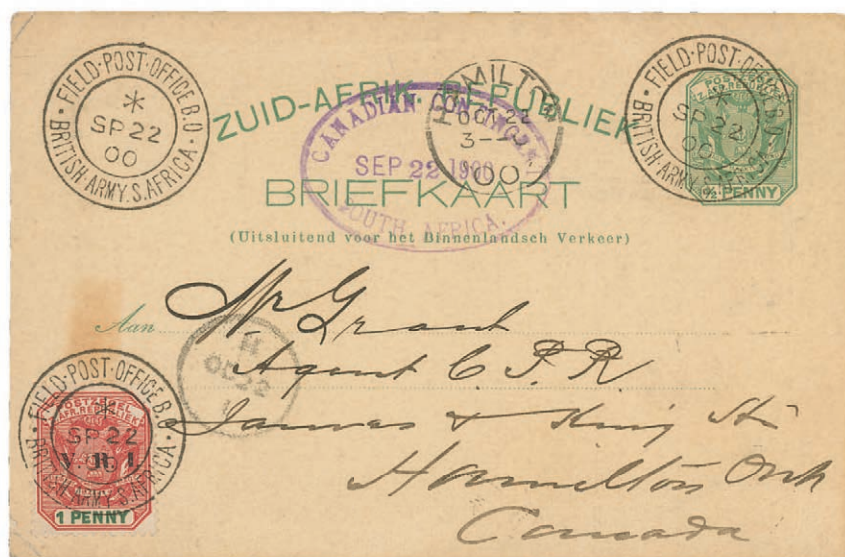 FIELD·POST·OFFICE B.O
BRITISH·ARMY.S.AFRICA
SP 22
00
ZUID-AFRIK. REPUBLIEK
CANADIAN CONTINGENT
SEP 22 1900
SOUTH AFRICA.
HAMILTON
OCT 22
3—
00
FIELD·POST·OFFICE B.O
BRITISH·ARMY.S.AFRICA
SP 22
00
½ PENNY
BRIEFKAART
(Uitsluitend voor het Binnenlandsch Verkeer)
Aan
Mr Grant
Agent C. P. R
James & King Sts
Hamilton Ont
Canada
H
OC 22
FIELD·POST·OFFICE B.O
BRITISH·ARMY.S.AFRICA
SP 22
00
POSTZEGEL
Z.AFR.REPUBLIEK
V. R. I.
1 PENNY